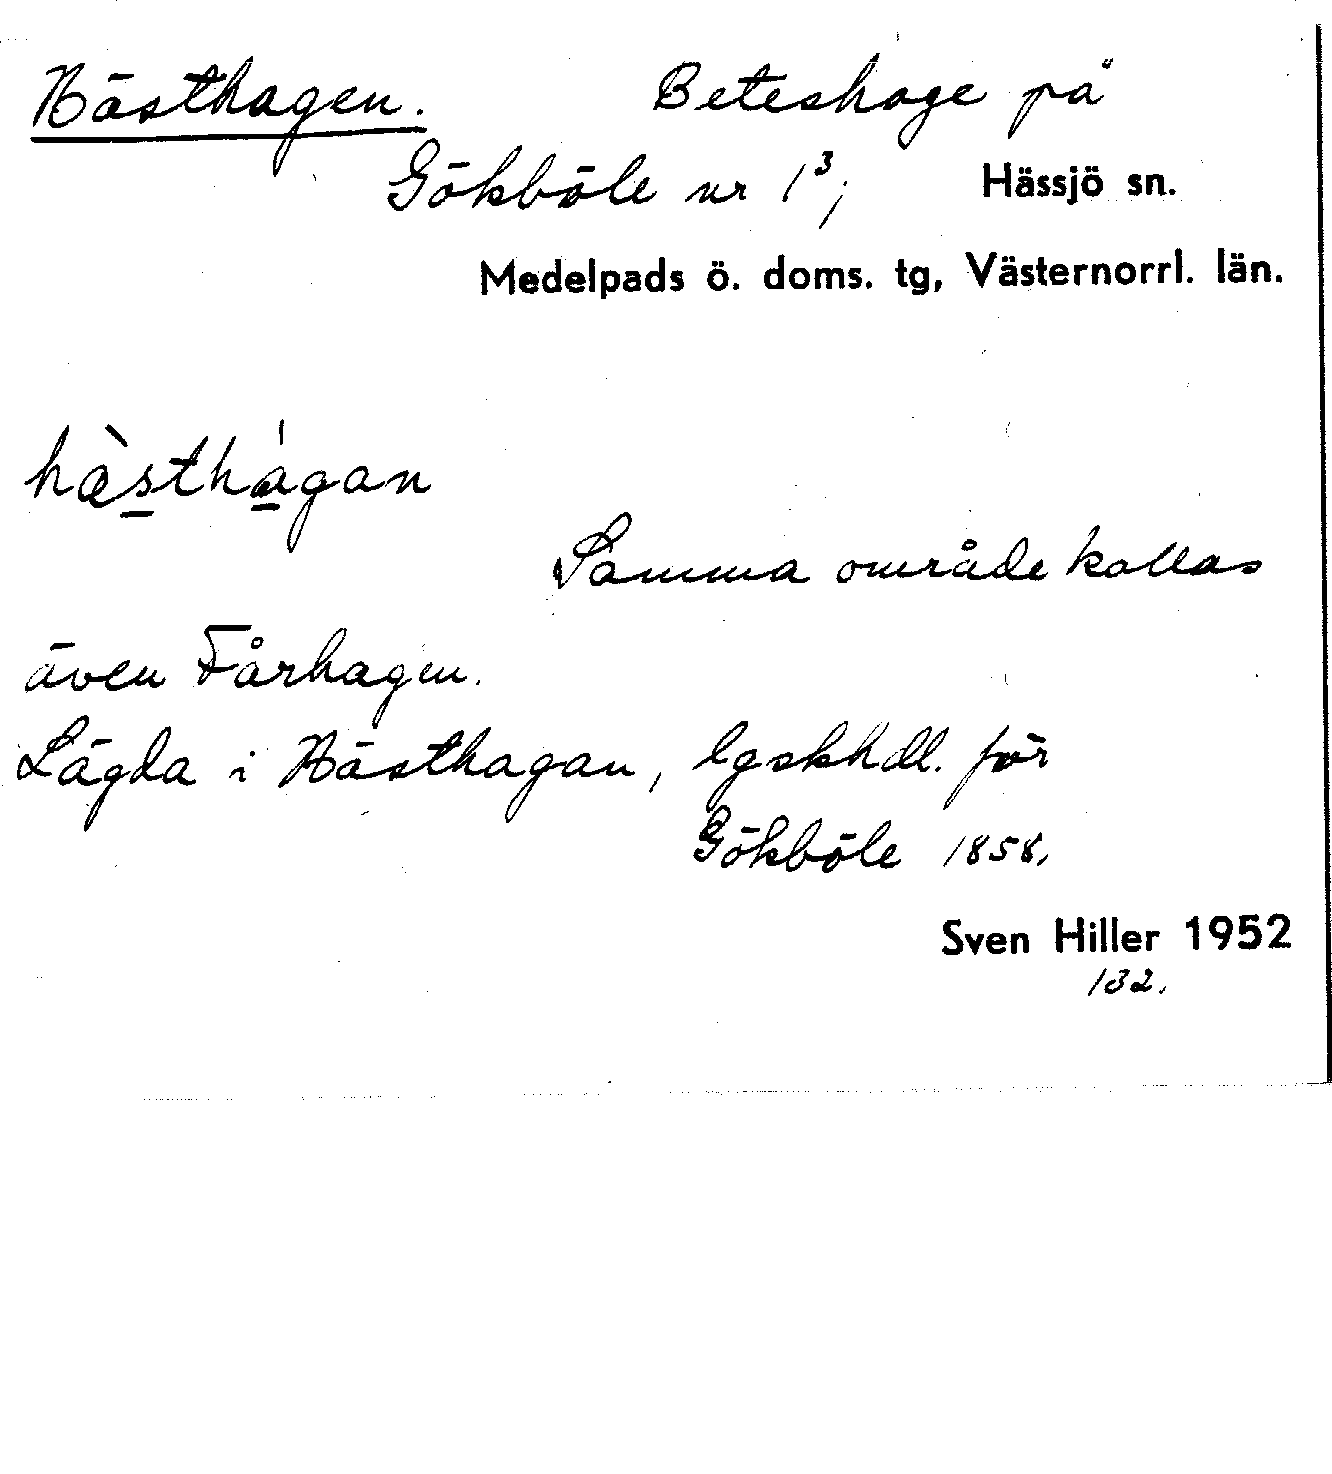 Hästhagen. Beteshage på
Gökböle nr 1³, Hässjö sn.
Medelpads ö. doms. tg, Västernorrl. län.
hæ̀sthágan
Samma område kallas
även Fårhagen.
Lägda i Hästhagan, lgskhdl. för
Gökböle 1858.
Sven Hiller 1952
132.